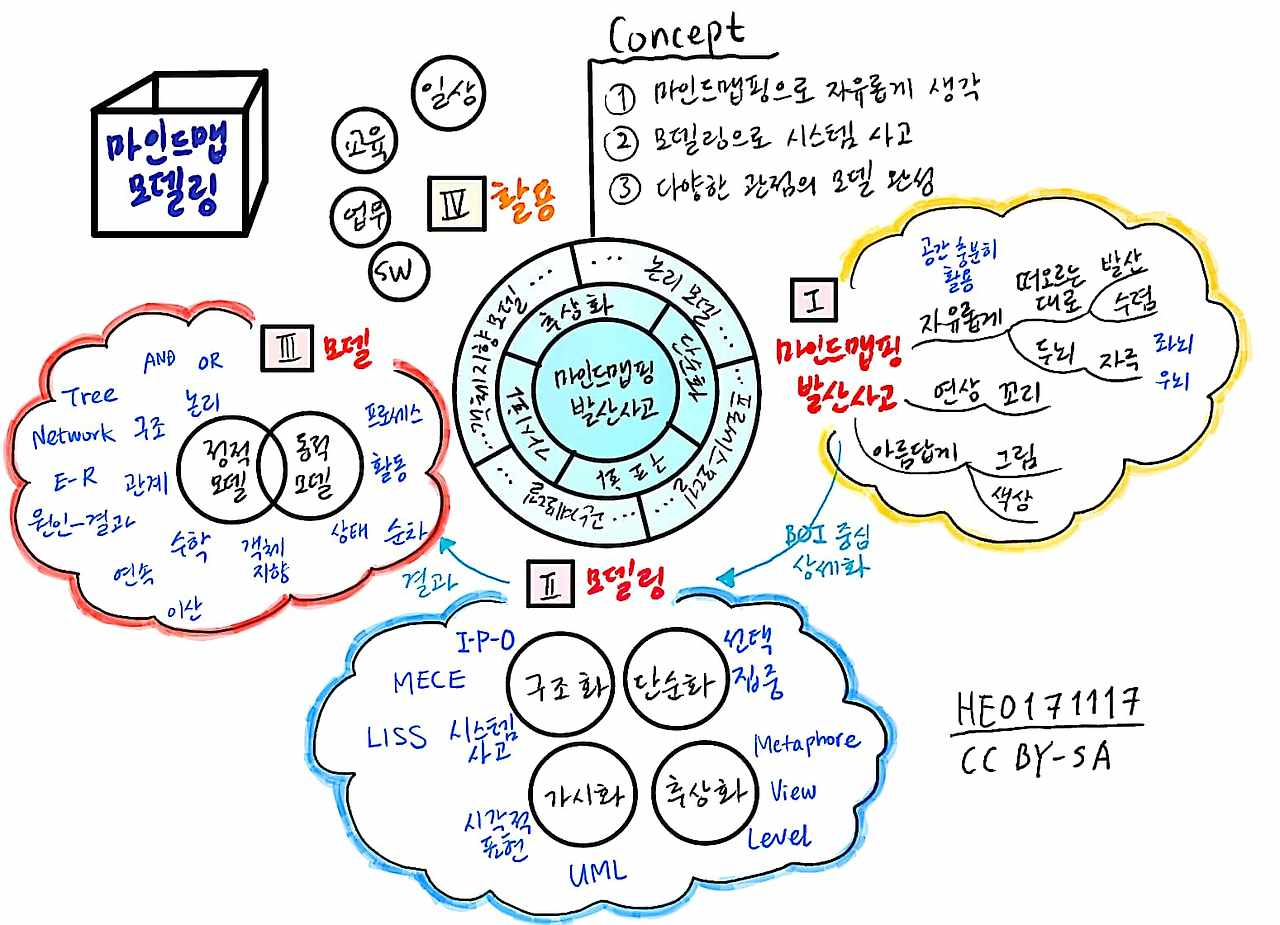 마인드맵
모델링
Concept
① 마인드맵핑으로 자유롭게 생각
② 모델링으로 시스템 사고
③ 다양한 관점의 모델 완성
일상
교육
업무
SW
Ⅳ 활용
마인드맵핑
발산사고
추상화
단순화
구조화
가시화
... 논리 모델 ...
... 프로세스모델 ...
... 객체지향모델 ...
Ⅰ
마인드맵핑
발산사고
공간 충분히
활용
자유롭게
떠오르는
대로
발산
수렴
두뇌
자극
좌뇌
우뇌
연상
꼬리
아름답게
그림
색상
BOI 중심
상세화
Ⅱ 모델링
I-P-O
MECE
LISS
시스템
사고
구조화
단순화
선택
집중
가시화
추상화
Metaphore
View
Level
시각적
표현
UML
결과
Ⅲ 모델
AND OR
논리
Tree
Network 구조
E-R 관계
원인-결과
정적
모델
동적
모델
프로세스
활동
상태 순차
수학
객체
지향
연속
이산
HEO171117
CC BY-SA